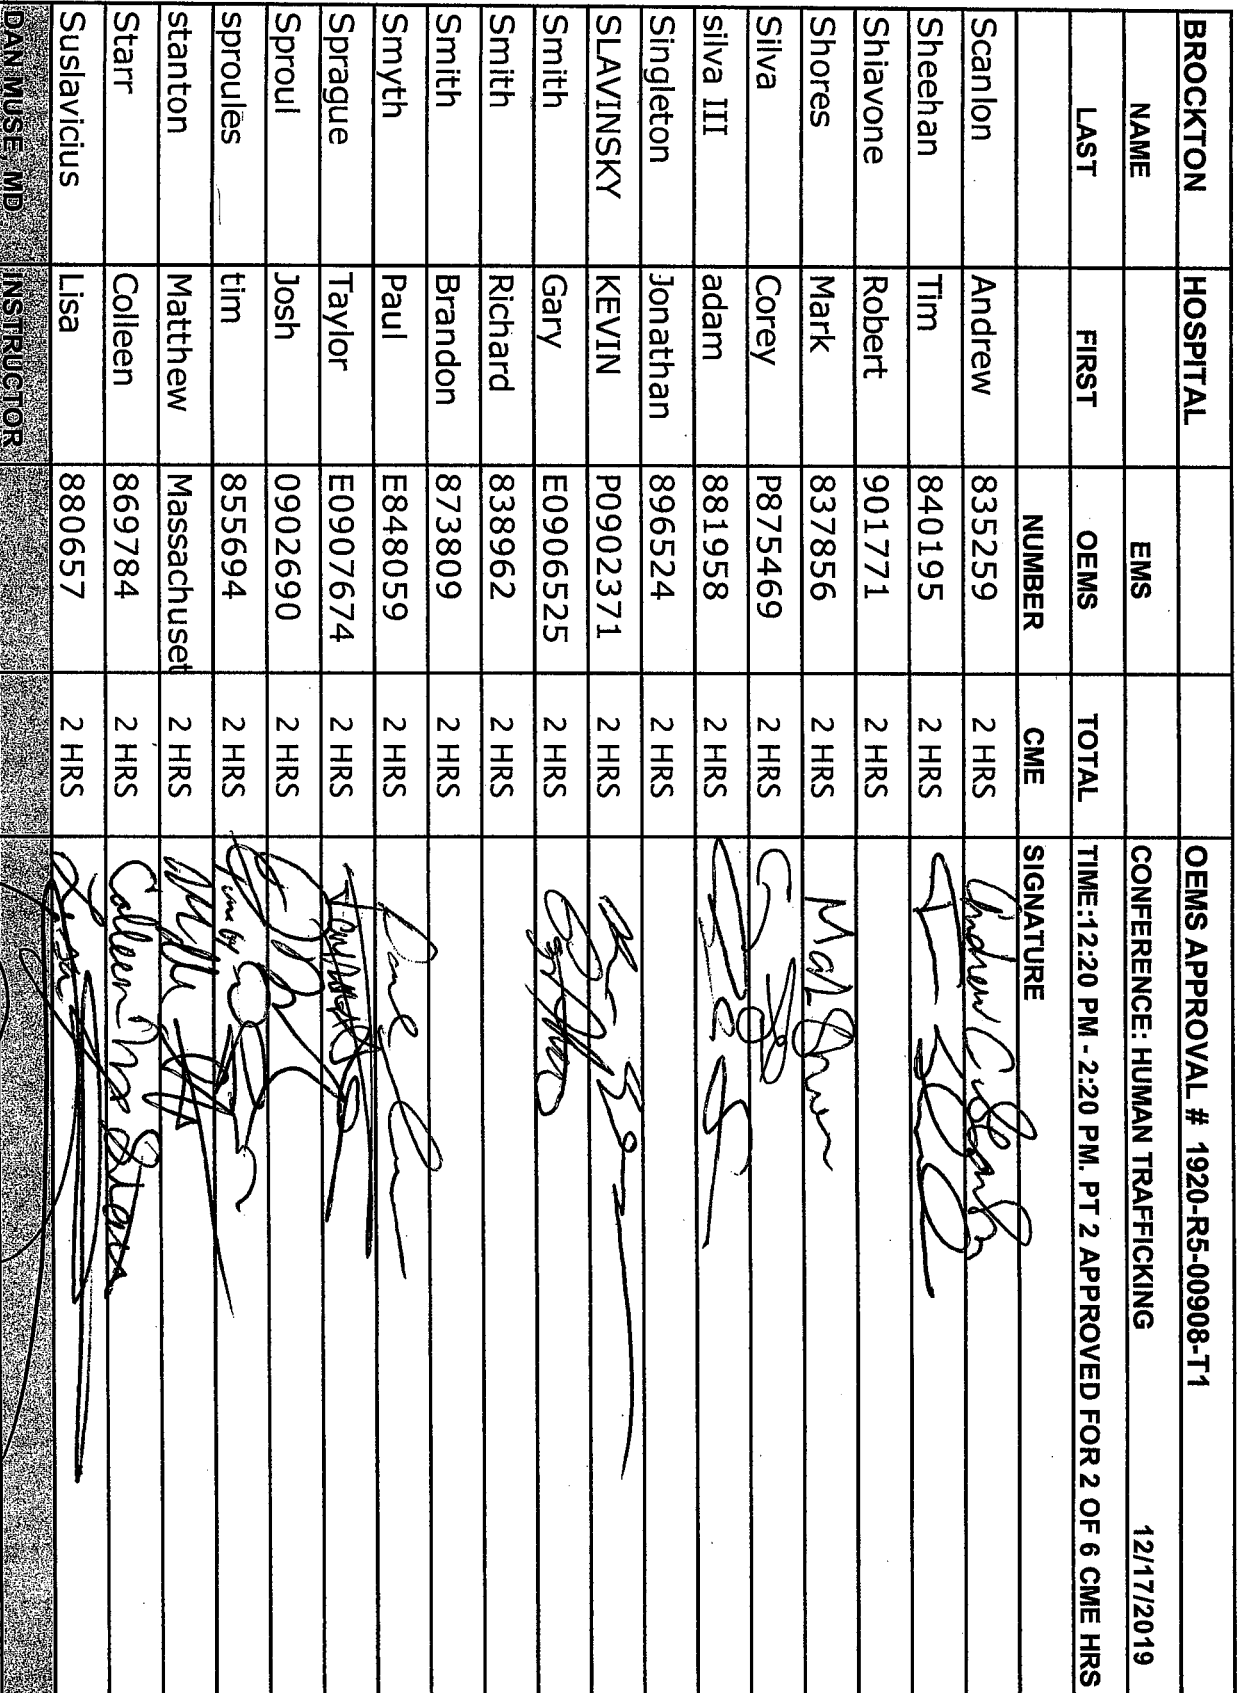 BROCKTON HOSPITAL OEMS APPROVAL # 1920-R5-00908-T1
NAME EMS CONFERENCE: HUMAN TRAFFICKING 12/17/2019
LAST FIRST OEMS TOTAL TIME:12:20 PM - 2:20 PM. PT 2 APPROVED FOR 2 OF 6 CME HRS
NUMBER CME SIGNATURE
Scanlon Andrew 835259 2 HRS Andrew
Sheehan Tim 840195 2 HRS
Shiavone Robert 901771 2 HRS
Shores Mark 837856 2 HRS
Silva Corey P875469 2 HRS
silva III adam 881958 2 HRS
Singleton Jonathan 896524 2 HRS
SLAVINSKY KEVIN P0902371 2 HRS
Smith Gary E0906525 2 HRS
Smith Richard 838962 2 HRS
Smith Brandon 873809 2 HRS
Smyth Paul E848059 2 HRS
Sprague Taylor E0907674 2 HRS
Sproul Josh 0902690 2 HRS
sproules tim 855694 2 HRS
stanton Matthew Massachuset 2 HRS
Starr Colleen 869784 2 HRS Colleen Starr
Suslavicius Lisa 880657 2 HRS Lisa
DAN MUSE, MD INSTRUCTOR